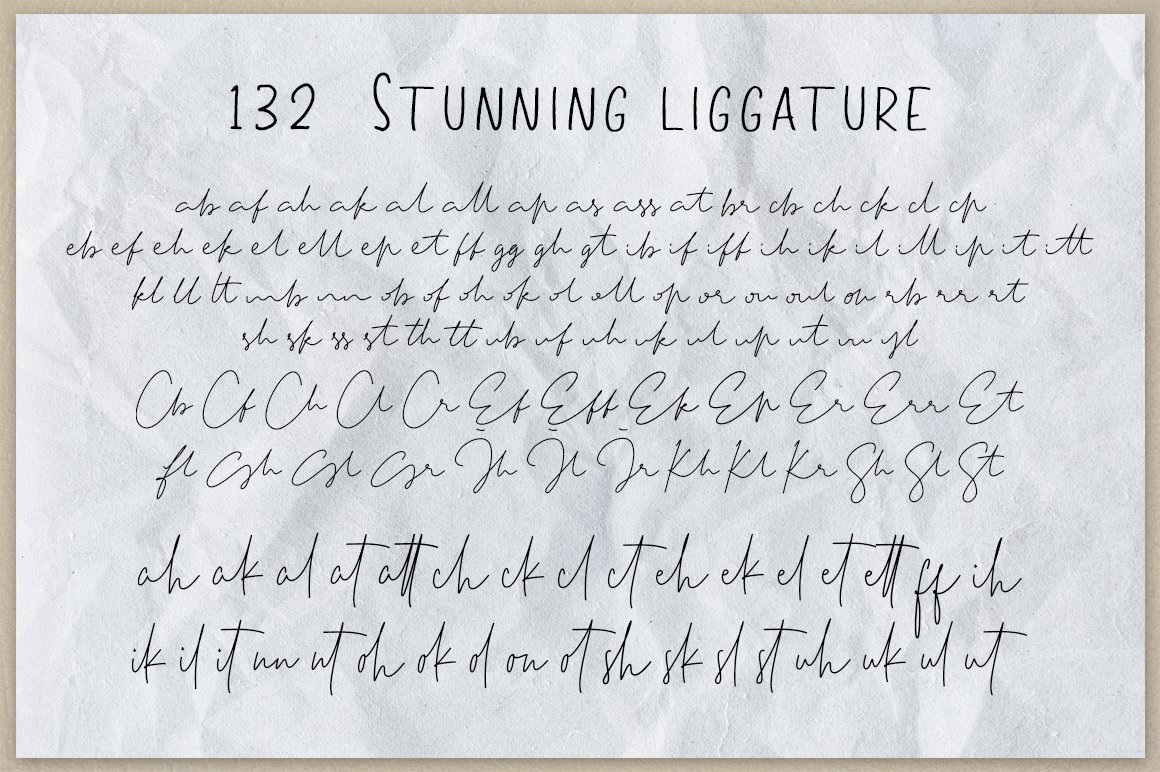 132 Stunning liggature
ab af ah ak al all ap as ass at br cb ch ck cl cp
eb ef eh ek el ell ep et ff gg gh gt ib if iff ih ik il ill ip it itt
kl ll lt mb nn ob of oh ok ol oll op or ou oul on rb rr rt
sh sk ss st th tt ub uf uh uk ul up ut yl
Cb Cf Ch Cl Cr Ef Eff Ek Ep Er Err Et
fl Gh Gl Gr Jh Jl Jr Kh Kl Kr Sh Sl St
ah ak al at att ch ck cl ct eh ek el et ett ff ih
ik il it nn nt oh ok ol on ot sh sk sl st uh uk ul ut